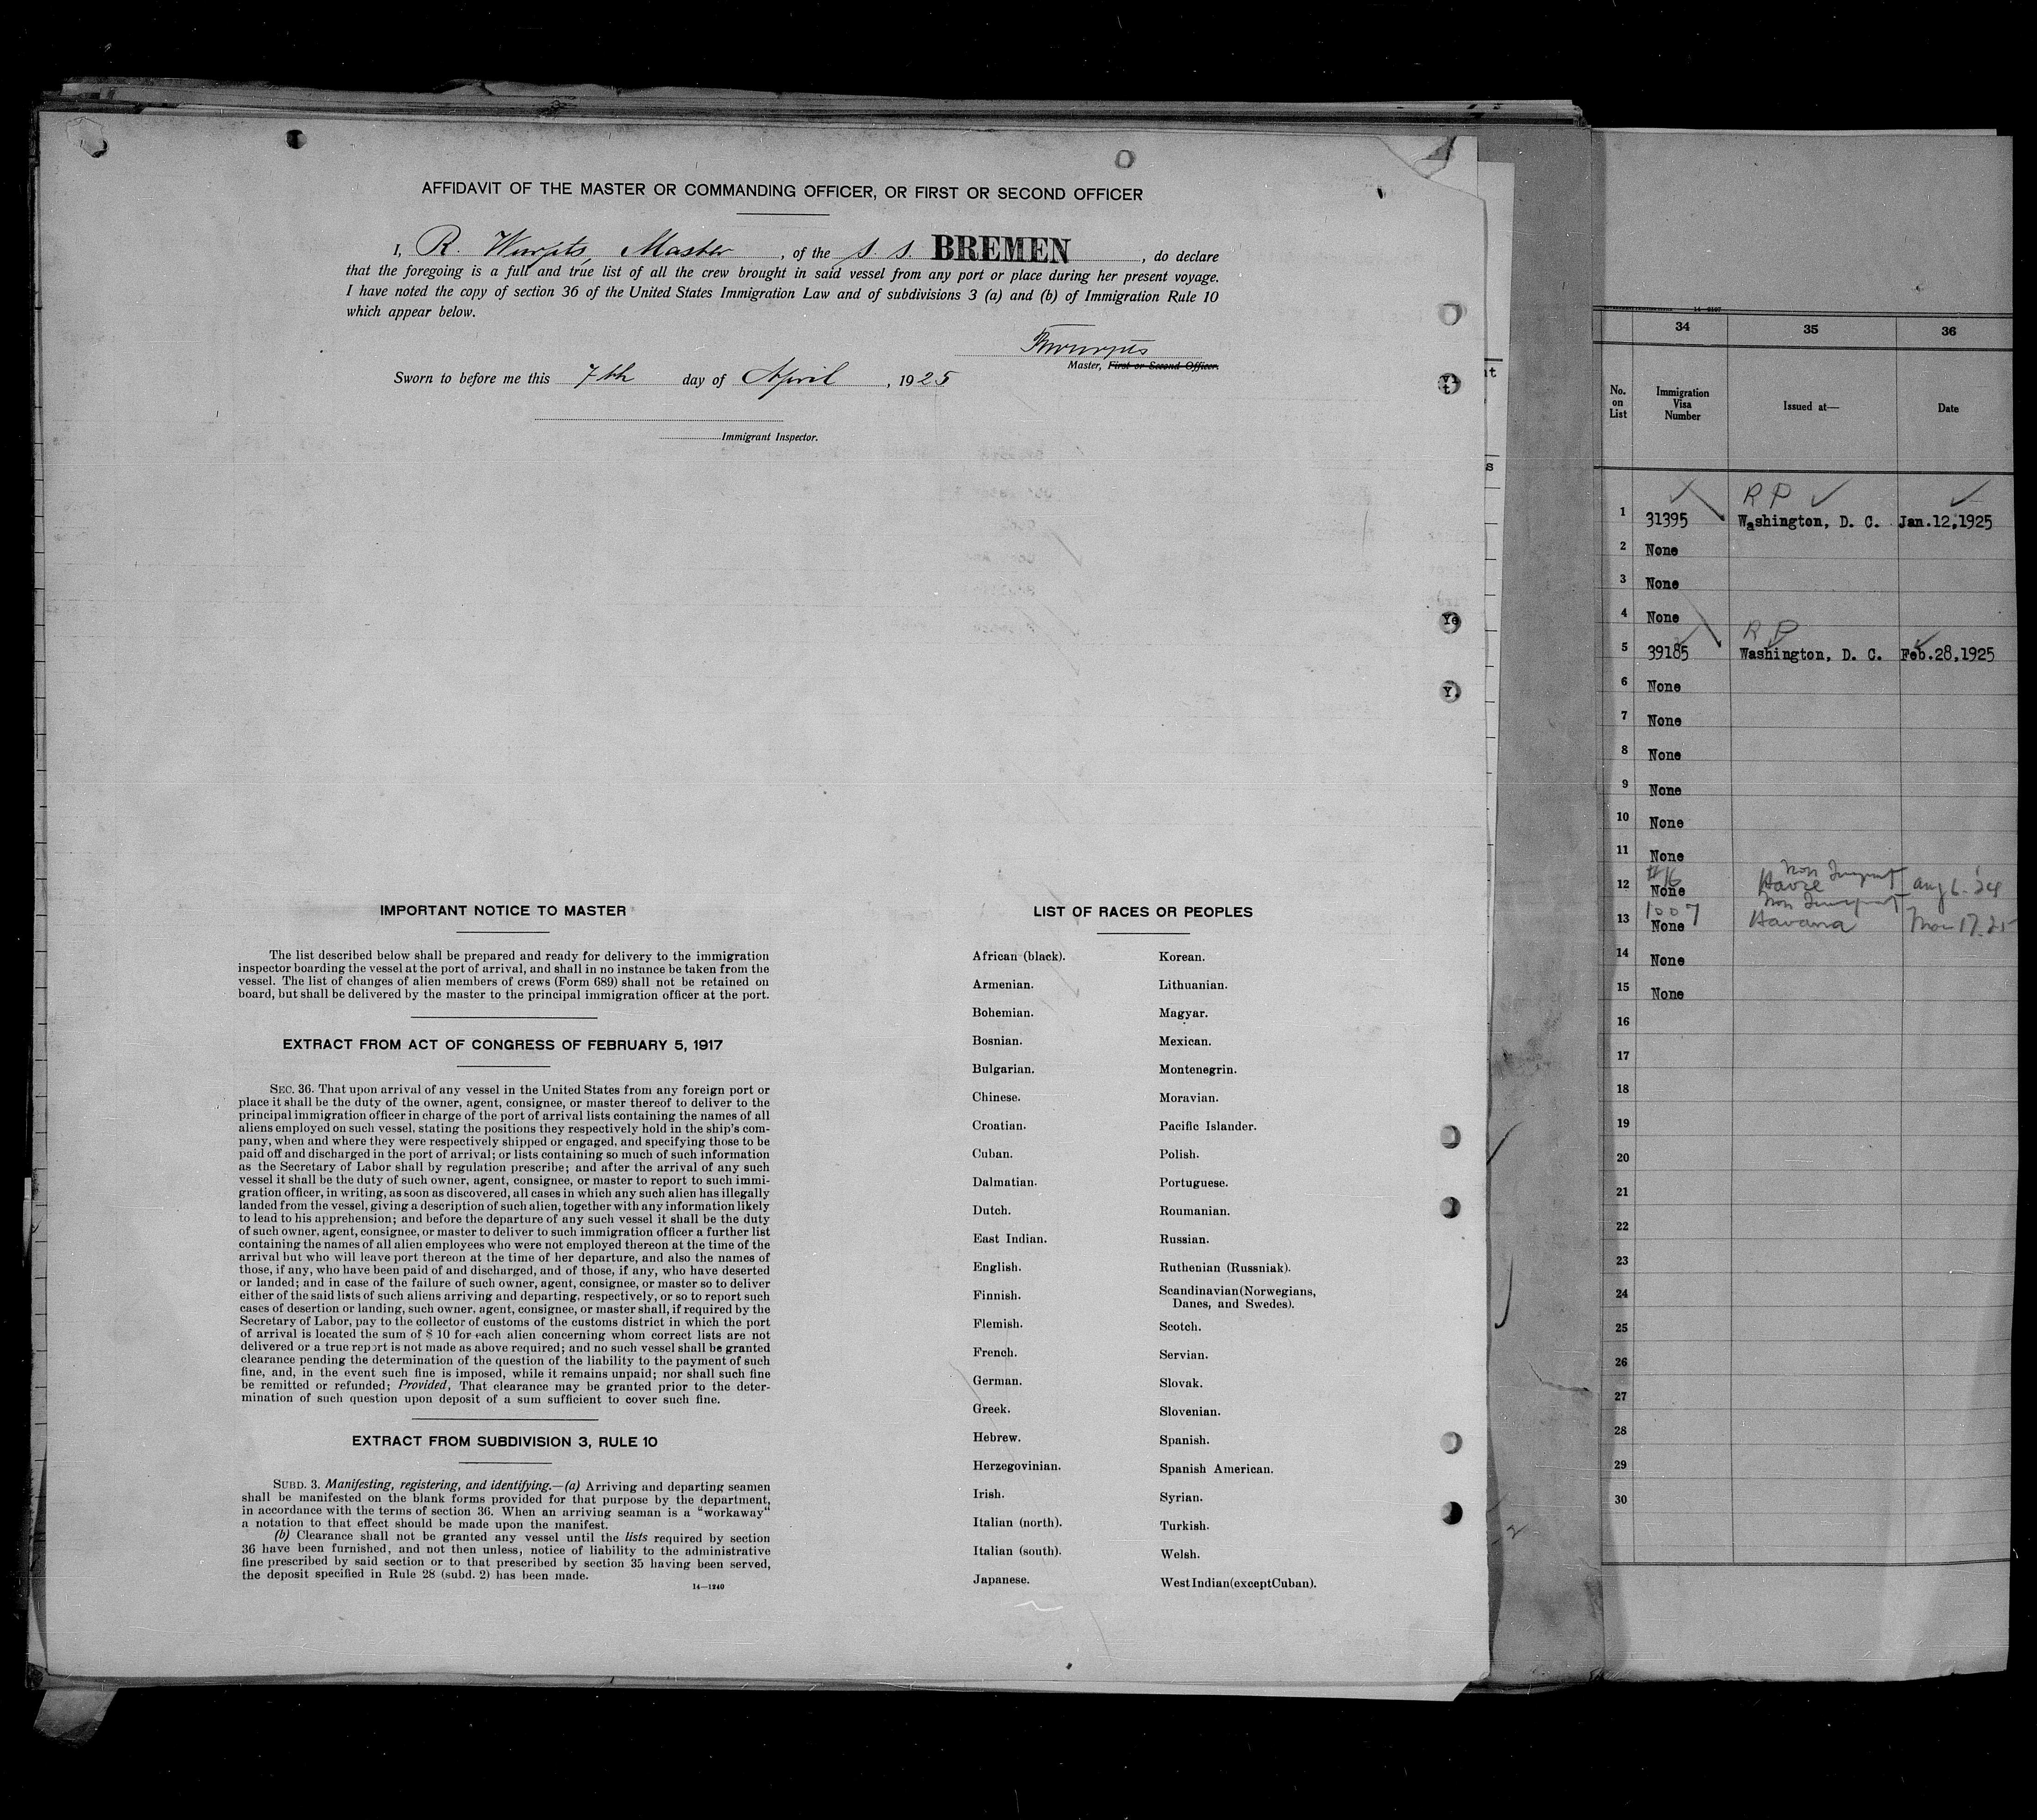 AFFIDAVIT OF THE MASTER OR COMMANDING OFFICER, OR FIRST OR SECOND OFFICER
I, R. Wurpts, Master, of the S. S. BREMEN, do declare
that the foregoing is a full and true list of all the crew brought in said vessel from any port or place during her present voyage.
I have noted the copy of section 36 of the United States Immigration Law and of subdivisions 3 (a) and (b) of Immigration Rule 10
which appear below.
Master, First or Second Officer.
Sworn to before me this 7th day of April, 1925
Immigrant Inspector.
IMPORTANT NOTICE TO MASTER
The list described below shall be prepared and ready for delivery to the immigration
inspector boarding the vessel at the port of arrival, and shall in no instance be taken from the
vessel. The list of changes of alien members of crews (Form 689) shall not be retained on
board, but shall be delivered by the master to the principal immigration officer at the port.
EXTRACT FROM ACT OF CONGRESS OF FEBRUARY 5, 1917
SEC. 36. That upon arrival of any vessel in the United States from any foreign port or
place it shall be the duty of the owner, agent, consignee, or master thereof to deliver to the
principal immigration officer in charge of the port of arrival lists containing the names of all
aliens employed on such vessel, stating the positions they respectively hold in the ship's com-
pany, when and where they were respectively shipped or engaged, and specifying those to be
paid off and discharged in the port of arrival; or lists containing so much of such information
as the Secretary of Labor shall by regulation prescribe; and after the arrival of any such
vessel it shall be the duty of such owner, agent, consignee, or master to report to such immi-
gration officer, in writing, as soon as discovered, all cases in which any such alien has illegally
landed from the vessel, giving a description of such alien, together with any information likely
to lead to his apprehension; and before the departure of any such vessel it shall be the duty
of such owner, agent, consignee, or master to deliver to such immigration officer a further list
containing the names of all alien employees who were not employed thereon at the time of the
arrival but who will leave port thereon at the time of her departure, and also the names of
those, if any, who have been paid of and discharged, and of those, if any, who have deserted
or landed; and in case of the failure of such owner, agent, consignee, or master so to deliver
either of the said lists of such aliens arriving and departing, respectively, or so to report such
cases of desertion or landing, such owner, agent, consignee, or master shall, if required by the
Secretary of Labor, pay to the collector of customs of the customs district in which the port
of arrival is located the sum of $ 10 for each alien concerning whom correct lists are not
delivered or a true report is not made as above required; and no such vessel shall be granted
clearance pending the determination of the question of the liability to the payment of such
fine, and, in the event such fine is imposed, while it remains unpaid; nor shall such fine
be remitted or refunded; Provided, That clearance may be granted prior to the deter-
mination of such question upon deposit of a sum sufficient to cover such fine.
EXTRACT FROM SUBDIVISION 3, RULE 10
SUBD. 3. Manifesting, registering, and identifying.—(a) Arriving and departing seamen
shall be manifested on the blank forms provided for that purpose by the department,
in accordance with the terms of section 36. When an arriving seaman is a "workaway"
a notation to that effect should be made upon the manifest.
(b) Clearance shall not be granted any vessel until the lists required by section
36 have been furnished, and not then unless, notice of liability to the administrative
fine prescribed by said section or to that prescribed by section 35 having been served,
the deposit specified in Rule 28 (subd. 2) has been made.
14—1240
LIST OF RACES OR PEOPLES
African (black). Korean.
Armenian. Lithuanian.
Bohemian. Magyar.
Bosnian. Mexican.
Bulgarian. Montenegrin.
Chinese. Moravian.
Croatian. Pacific Islander.
Cuban. Polish.
Dalmatian. Portuguese.
Dutch. Roumanian.
East Indian. Russian.
English. Ruthenian (Russniak).
Finnish. Scandinavian (Norwegians,
Danes, and Swedes).
Flemish. Scotch.
French. Servian.
German. Slovak.
Greek. Slovenian.
Hebrew. Spanish.
Herzegovinian. Spanish American.
Irish. Syrian.
Italian (north). Turkish.
Italian (south). Welsh.
Japanese. West Indian (except Cuban).
34 35 36
No. on List Immigration Visa Number Issued at— Date
R P
1 31395 Washington, D. C. Jan.12,1925
2 None
3 None
4 None
R P
5 39185 Washington, D. C. Feb.28,1925
6 None
7 None
8 None
9 None
10 None
11 None
#16 Non
12 None Havre Aug 6-'24
1007 Non
13 None Havana
14 None
15 None
16
17
18
19
20
21
22
23
24
25
26
27
28
29
30